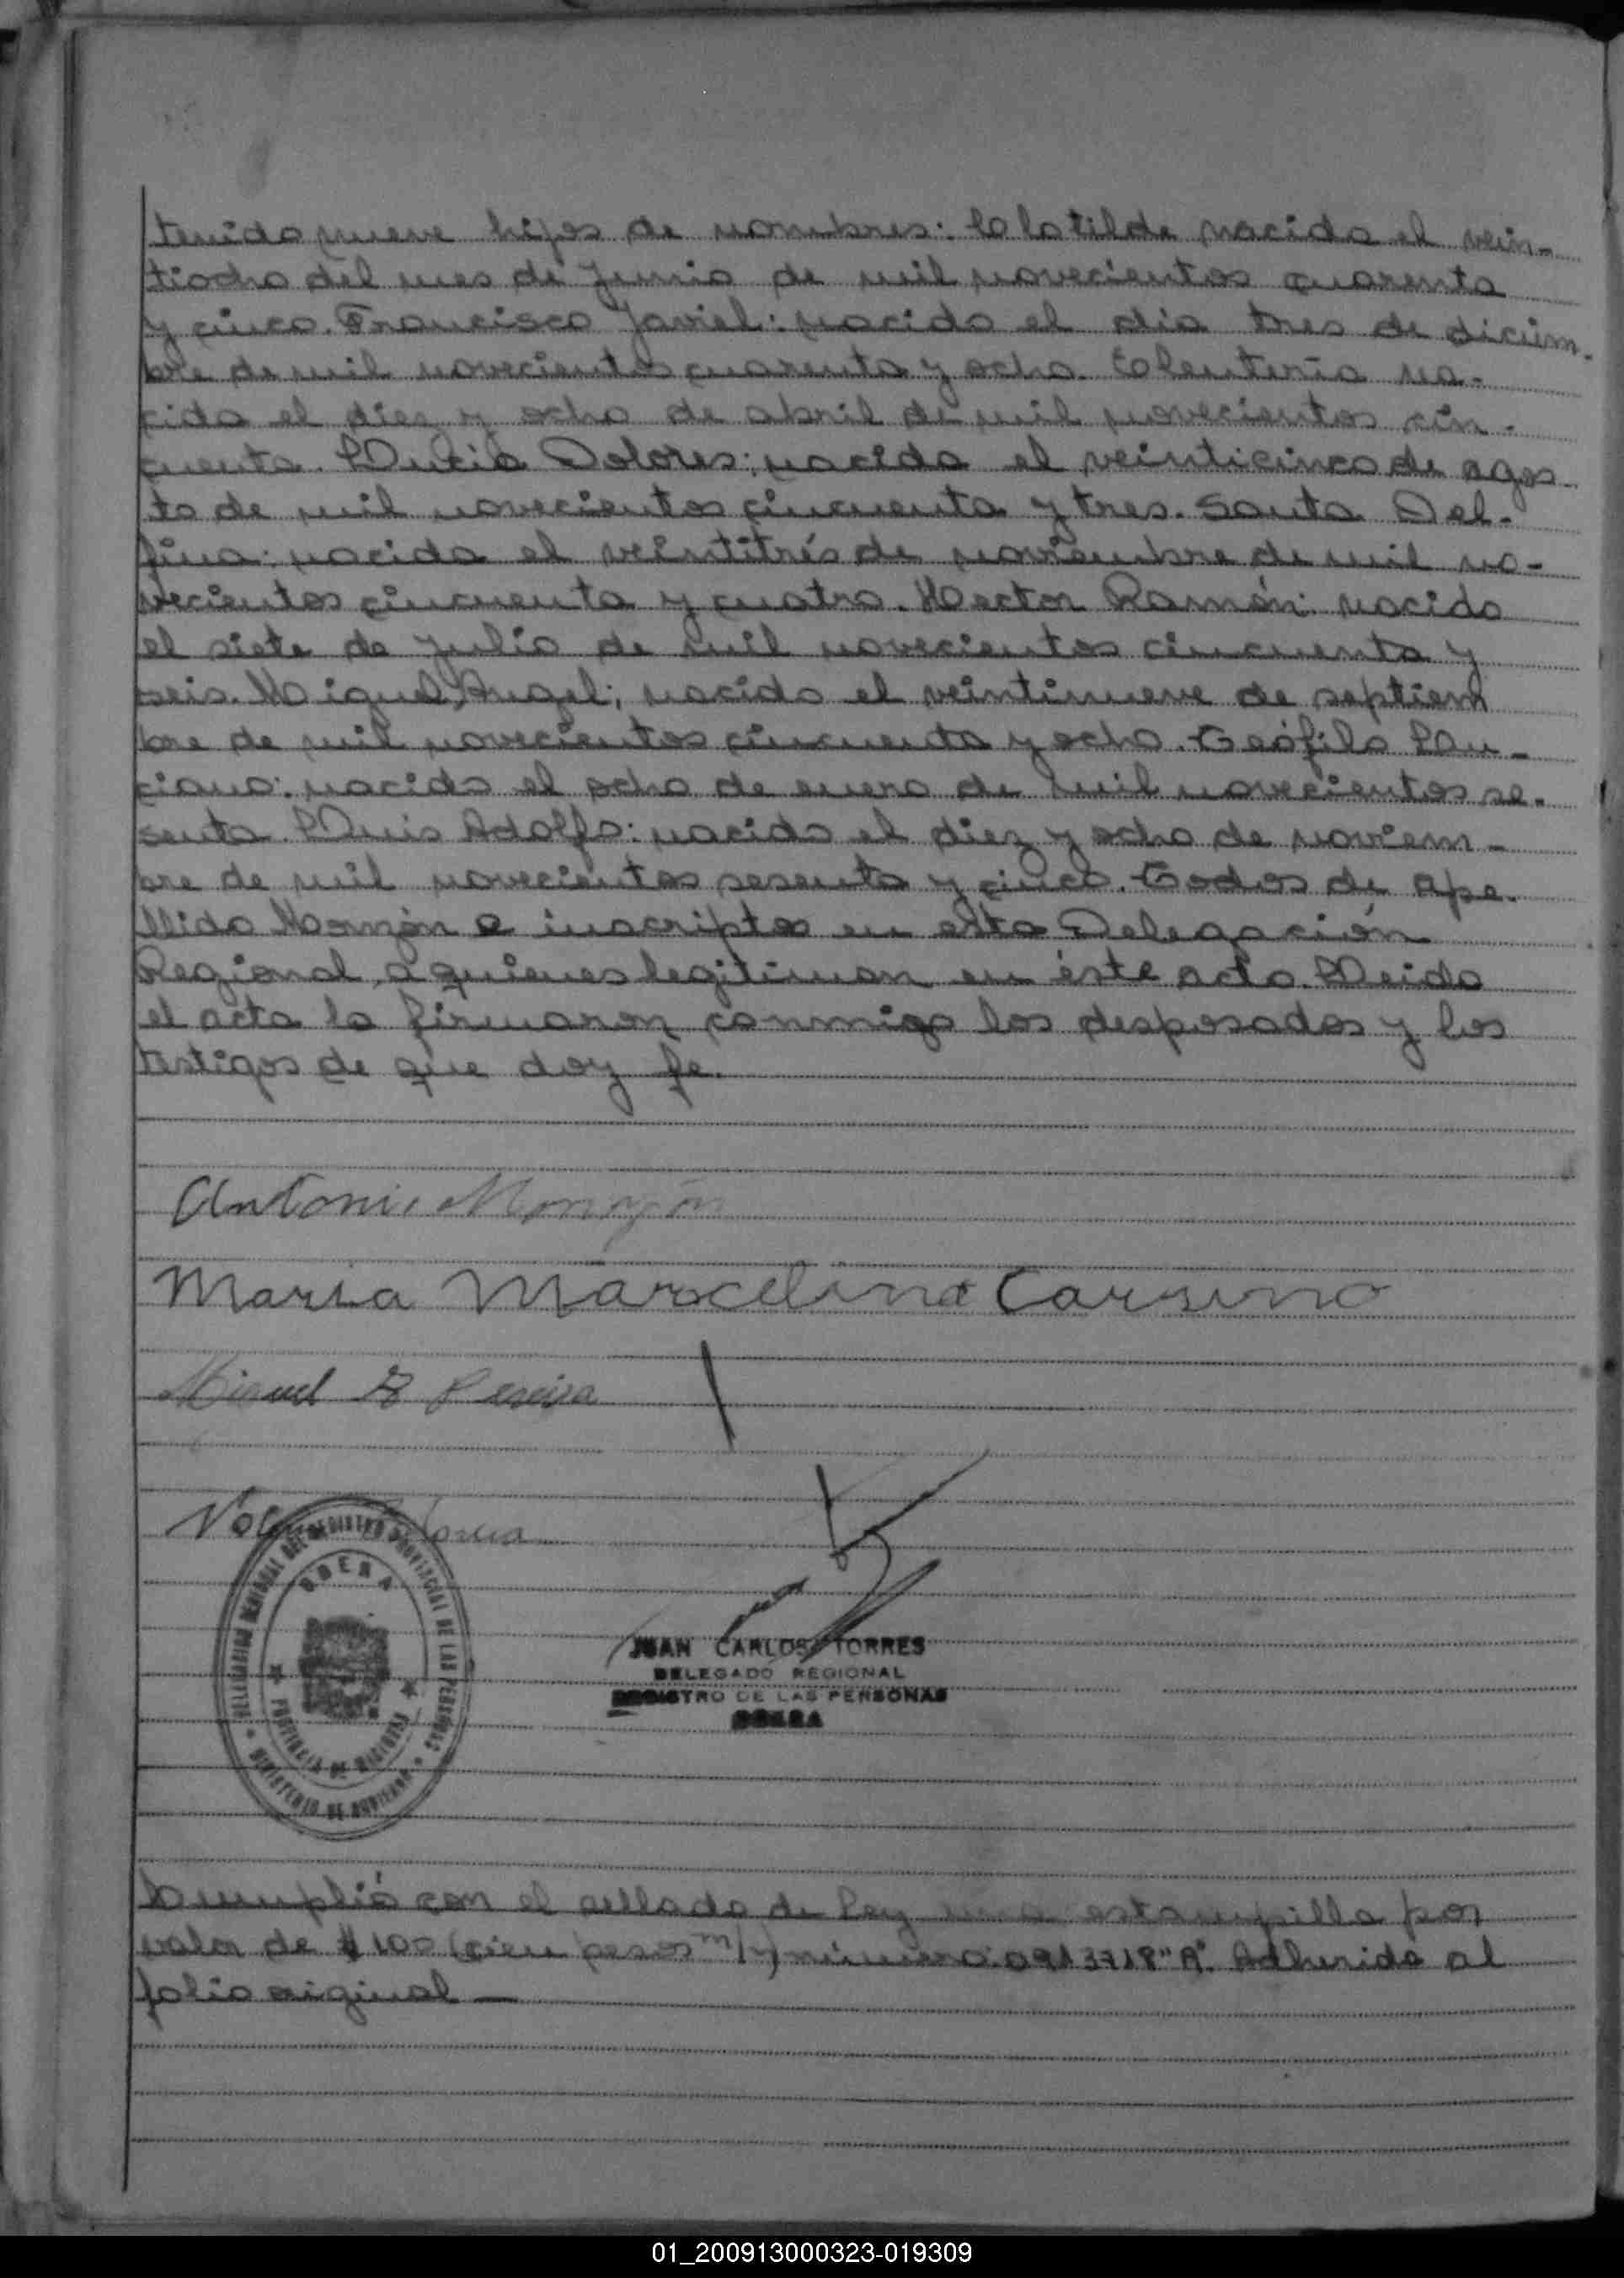 tenido nueve hijos de nombres: Clotilde nacida el vein-
tiocho del mes de Junio de mil novecientos cuarenta
y cinco. Francisco Javiel: nacido el dia tres de diciem-
bre de mil novecientos cuarenta y ocho. Eleuteria na-
cida el diez y ocho de abril de mil novecientos cin-
cuenta. Lucia Dolores; nacida el veinticinco de agos-
to de mil novecientos cincuenta y tres. Santa Del-
fina: nacida el veintitrés de noviembre de mil no-
vecientos cincuenta y cuatro. Hector Ramón: nacido
el siete de Julio de mil novecientos cincuenta y
seis. Miguel Angel; nacido el veintinueve de septiem
bre de mil novecientos cincuenta y ocho. Teófilo Lu-
ciano: nacido el ocho de enero de mil novecientos se-
senta. Luis Adolfo: nacido el diez y ocho de noviem-
bre de mil novecientos sesenta y cinco. Todos de ape-
llido Monzón e inscriptos en esta Delegación
Regional, a quienes legitiman en éste acto. Leida
el acta la firmaron conmigo los desposados y los
testigos de que doy fe.
Antonio Monzón
Maria Marcelina
Miguel Pereira
JUAN CARLOS TORRES
DELEGADO REGIONAL
REGISTRO DE LAS PERSONAS
OBERA
DELEGACION REGIONAL DEL REGISTRO PROVINCIAL DE LAS PERSONAS
OBERA
PROVINCIA DE MISIONES
MINISTERIO DE GOBIERNO
Cumplió con el sellado de Ley una estampilla por
valor de $ 100 (cien pesos m/n) número: 0913718 "A". Adherida al
folio original —
01_200913000323-019309